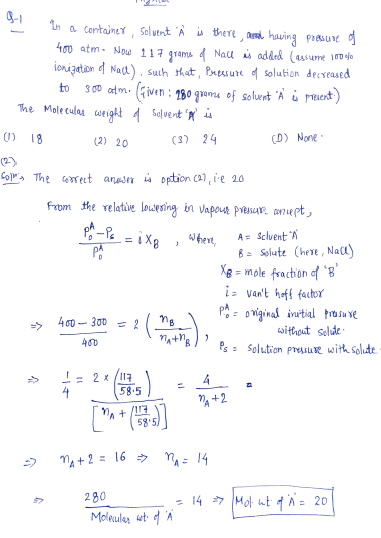 Physics
Q-1 In a container, solvent 'A' is there, having pressure of
400 atm. Now 117 grams of Nacl is added (assume 100%
ionization of Nacl), such that, Pressure of solution decreased
to 300 atm. (Given: 280 grams of solvent 'A' is present)
The Molecular weight of solvent 'A' is
(1) 18 (2) 20 (3) 24 (D) None.
(2),
Solⁿ→ The correct answer is option (2), i.e 20
From the relative lowering in vapour pressure concept,
(P₀ᴬ - Pₛ) / P₀ᴬ = i X_B , where, A = solvent 'A'
B = solute (here, Nacl)
X_B = mole fraction of 'B'
i = van't hoff factor
P₀ᴬ = original initial pressure
without solute.
Pₛ = solution pressure with solute.
⇒ (400 - 300) / 400 = 2 (n_B / (n_A + n_B)),
⇒ 1/4 = 2 × (117/58.5) / [n_A + (117/58.5)] = 4 / (n_A + 2) =
⇒ n_A + 2 = 16 ⇒ n_A = 14
⇒ 280 / Molecular wt. of 'A' = 14 ⇒ Mol. wt of 'A' = 20